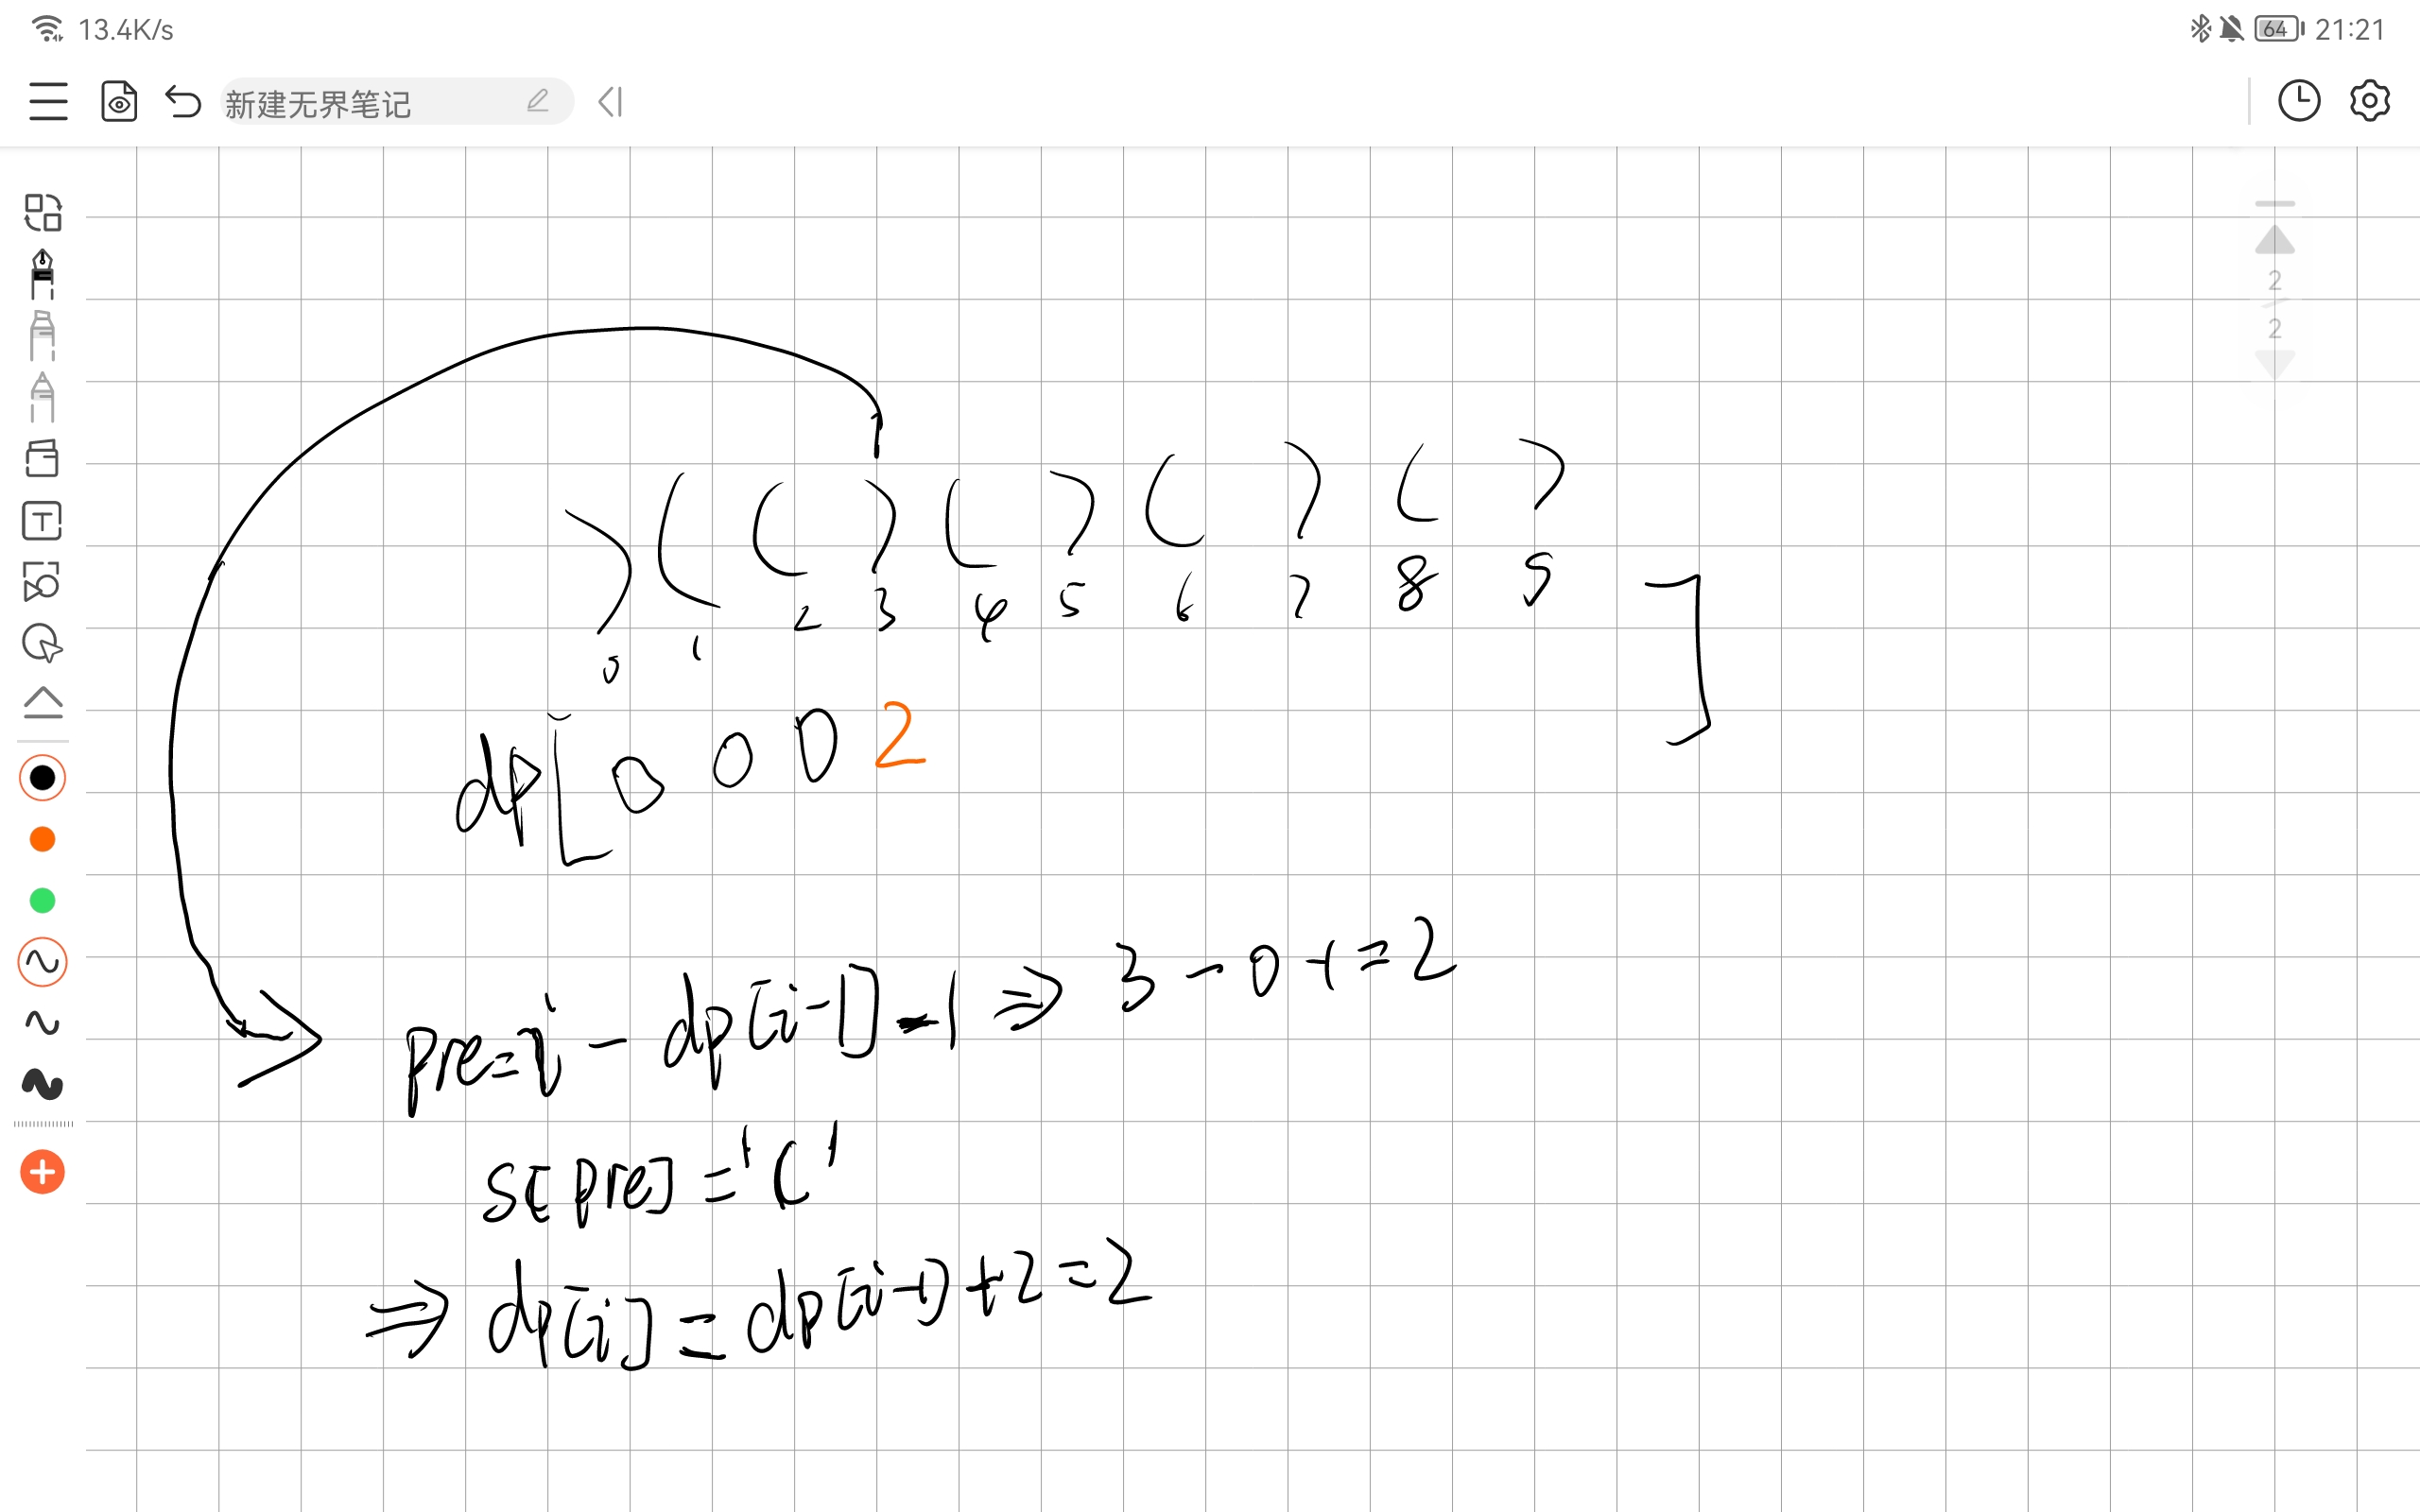 13.4K/s 64 21:21
新建无界笔记
T
2
2
) ( ( ) ( ) ( ) ( )
0 1 2 3 4 5 6 7 8 9
dp[ 0 0 0 2 ]
pre=i-dp[i-1]-1 ⇒ 3-0-1=2
s[pre]='('
⇒ dp[i]=dp[i-1]+2=2